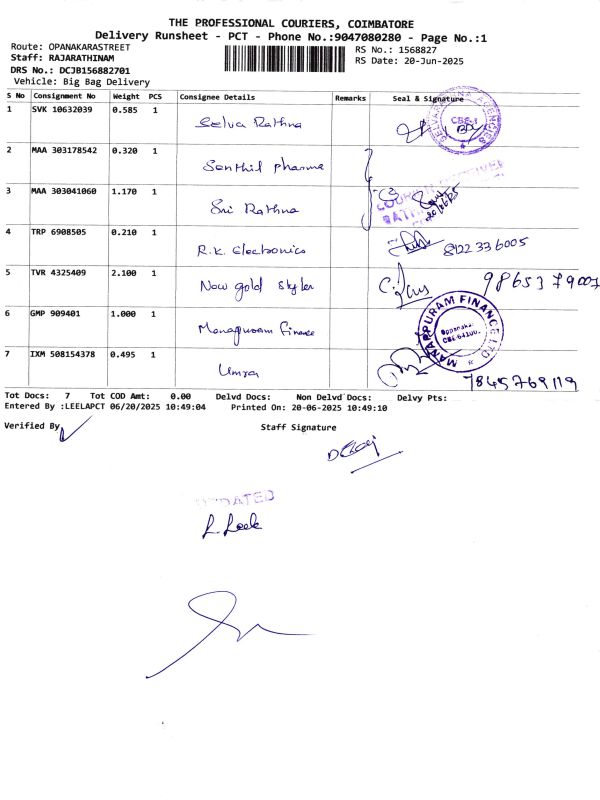 THE PROFESSIONAL COURIERS, COIMBATORE
Delivery Runsheet - PCT - Phone No.:9047080280 - Page No.:1
Route: OPANAKARASTREET
Staff: RAJARATHINAM
DRS No.: DCJB156882701
Vehicle: Big Bag Delivery
RS No.: 1568827
RS Date: 20-Jun-2025
S No Consignment No Weight PCS Consignee Details Remarks Seal & Signature
1 SVK 10632039 0.585 1 Selva Rathna
SELVARATHNA AGENCIES
CBE-1
2 MAA 303178542 0.320 1 Senthil pharma
3 MAA 303041060 1.170 1 Sri Rathna
20/06/25
4 TRP 6908505 0.210 1 R.K. Electronics 8122336005
5 TVR 4325409 2.100 1 New gold Styler 9865379007
6 GMP 909401 1.000 1 Manapuram finance
MANAPPURAM FINANCE LTD
7 IXM 508154378 0.495 1 Umra 7845769119
Tot Docs: 7 Tot COD Amt: 0.00 Delvd Docs: Non Delvd Docs: Delvy Pts:
Entered By :LEELAPCT 06/20/2025 10:49:04 Printed On: 20-06-2025 10:49:10
Verified By Staff Signature
UPDATED